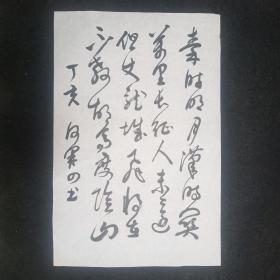 秦时明月汉时关
万里长征人未还
但使龙城飞将在
不教胡马度阴山
丁亥 书